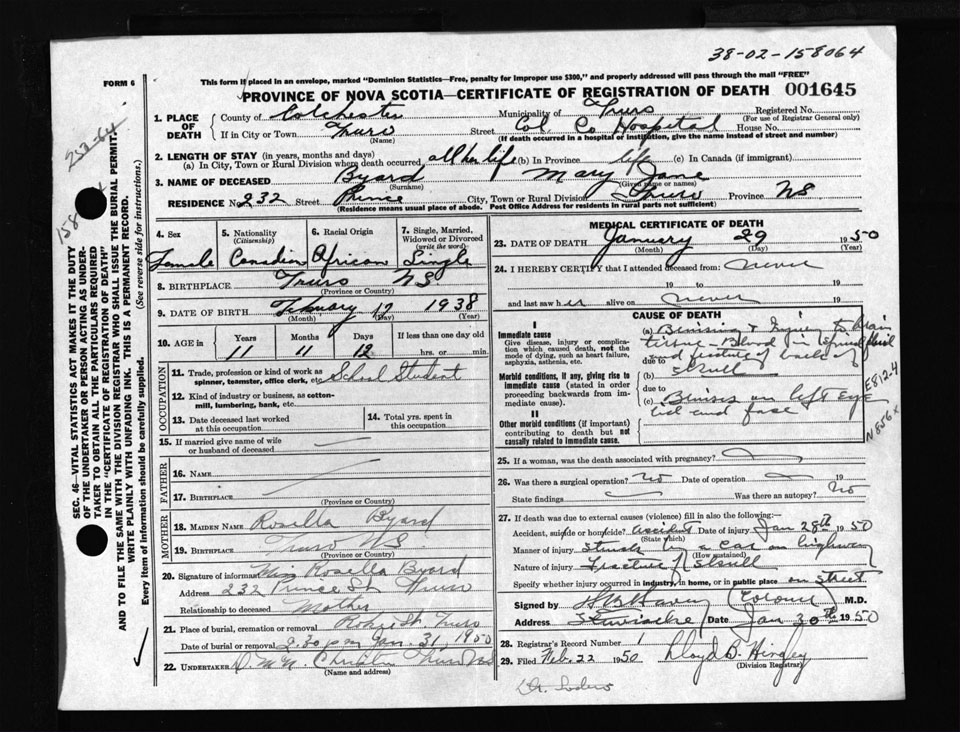 38-02-158064
FORM 6
This form if placed in an envelope, marked "Dominion Statistics—Free, penalty for improper use $300," and properly addressed will pass through the mail "FREE"
PROVINCE OF NOVA SCOTIA—CERTIFICATE OF REGISTRATION OF DEATH 001645
1. PLACE OF DEATH
County of Colchester Municipality of Truro Registered No.
(For use of Registrar General only)
If in City or Town Truro Street Col. Co Hospital House No.
(If death occurred in a hospital or institution, give the name instead of street and number)
2. LENGTH OF STAY (in years, months and days)
(a) In City, Town or Rural Division where death occurred all her life (b) In Province life (c) In Canada (if immigrant)
3. NAME OF DECEASED Byard Mary Jane
(Surname) (Given name or names)
RESIDENCE No. 232 Street Prince City, Town or Rural Division Truro Province NS
(Residence means usual place of abode. Post Office Address for residents in rural parts not sufficient)
4. Sex
Female
5. Nationality
(Citizenship)
Canadian
6. Racial Origin
African
7. Single, Married, Widowed or Divorced
(write the word)
Single
8. BIRTHPLACE Truro N.S.
(Province or Country)
9. DATE OF BIRTH Febuary 17 1938
(Month) (Day) (Year)
10. AGE in
Years Months Days If less than one day old
11 11 12 hrs. or min.
OCCUPATION
11. Trade, profession or kind of work as spinner, teamster, office clerk, etc. School Student
12. Kind of industry or business, as cotton-mill, lumbering, bank, etc.
13. Date deceased last worked at this occupation
14. Total yrs. spent in this occupation
15. If married give name of wife or husband of deceased
FATHER
16. NAME
17. BIRTHPLACE
(Province or Country)
MOTHER
18. MAIDEN NAME Rosella Byard
19. BIRTHPLACE Truro N.S.
(Province or Country)
20. Signature of informant Miss Rosella Byard
Address 232 Prince St Truro
Relationship to deceased Mother
21. Place of burial, cremation or removal Robie St. Truro
Date of burial or removal 2.30 pm Jan. 31, 1950
22. UNDERTAKER Truro NS
(Name and address)
MEDICAL CERTIFICATE OF DEATH
23. DATE OF DEATH January 29 1950
(Month) (Day) (Year)
24. I HEREBY CERTIFY that I attended deceased from: never
19 to 19
and last saw her alive on never 19
CAUSE OF DEATH
I
Immediate cause
Give disease, injury or complication which caused death, not the mode of dying, such as heart failure, asphyxia, asthenia, etc.
(a) Bruising & Injury to brain
tissue - Blood in spinal fluid
and fracture of
(b) skull
Morbid conditions, if any, giving rise to immediate cause (stated in order proceeding backwards from immediate cause).
due to
(c) Bruises on left eye
lid and face
II
Other morbid conditions (if important) contributing to death but not causally related to immediate cause.
E812.4
N856x
25. If a woman, was the death associated with pregnancy?
26. Was there a surgical operation? no Date of operation
State findings Was there an autopsy? No
27. If death was due to external causes (violence) fill in also the following:
Accident, suicide or homicide? accident Date of injury Jan 28th 1950
(State which)
Manner of injury Struck by a car on highway
(How sustained)
Nature of injury Fracture of Skull
Specify whether injury occurred in industry, in home, or in public place on street
Signed by (Coroner) M.D.
Address Stewiacke Date Jan 30th 1950
28. Registrar's Record Number 1
29. Filed Feb. 22 1950 Lloyd B.
(Division Registrar)
SEC. 46—VITAL STATISTICS ACT MAKES IT THE DUTY OF THE UNDERTAKER OR PERSON ACTING AS UNDERTAKER TO OBTAIN ALL THE PARTICULARS REQUIRED IN THE "CERTIFICATE OF REGISTRATION OF DEATH" AND TO FILE THE SAME WITH THE DIVISION REGISTRAR WHO SHALL ISSUE THE BURIAL PERMIT.
WRITE PLAINLY WITH UNFADING INK. THIS IS A PERMANENT RECORD.
Every item of information should be carefully supplied. (See reverse side for instructions.)